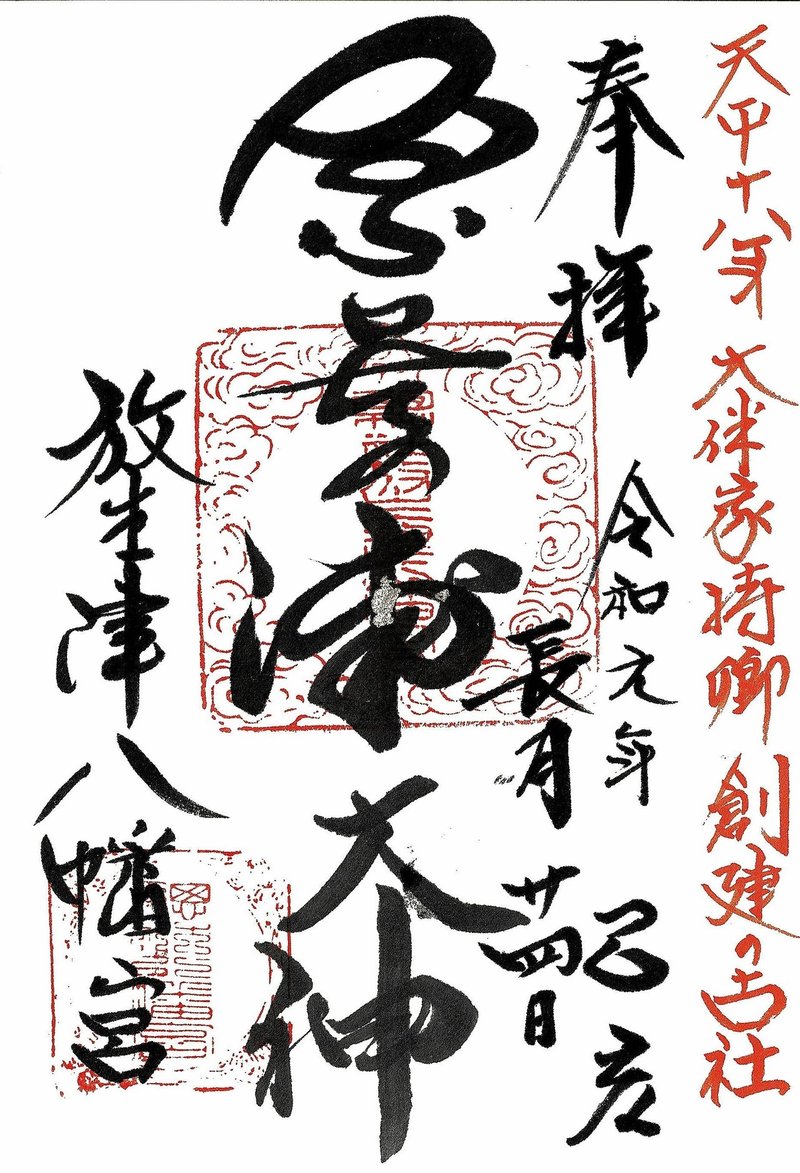 天平十八年 大伴家持卿 創建の古社
奉拝 令和元年 己亥
長月 廿四日
奈呉浦大神
放生津八幡宮